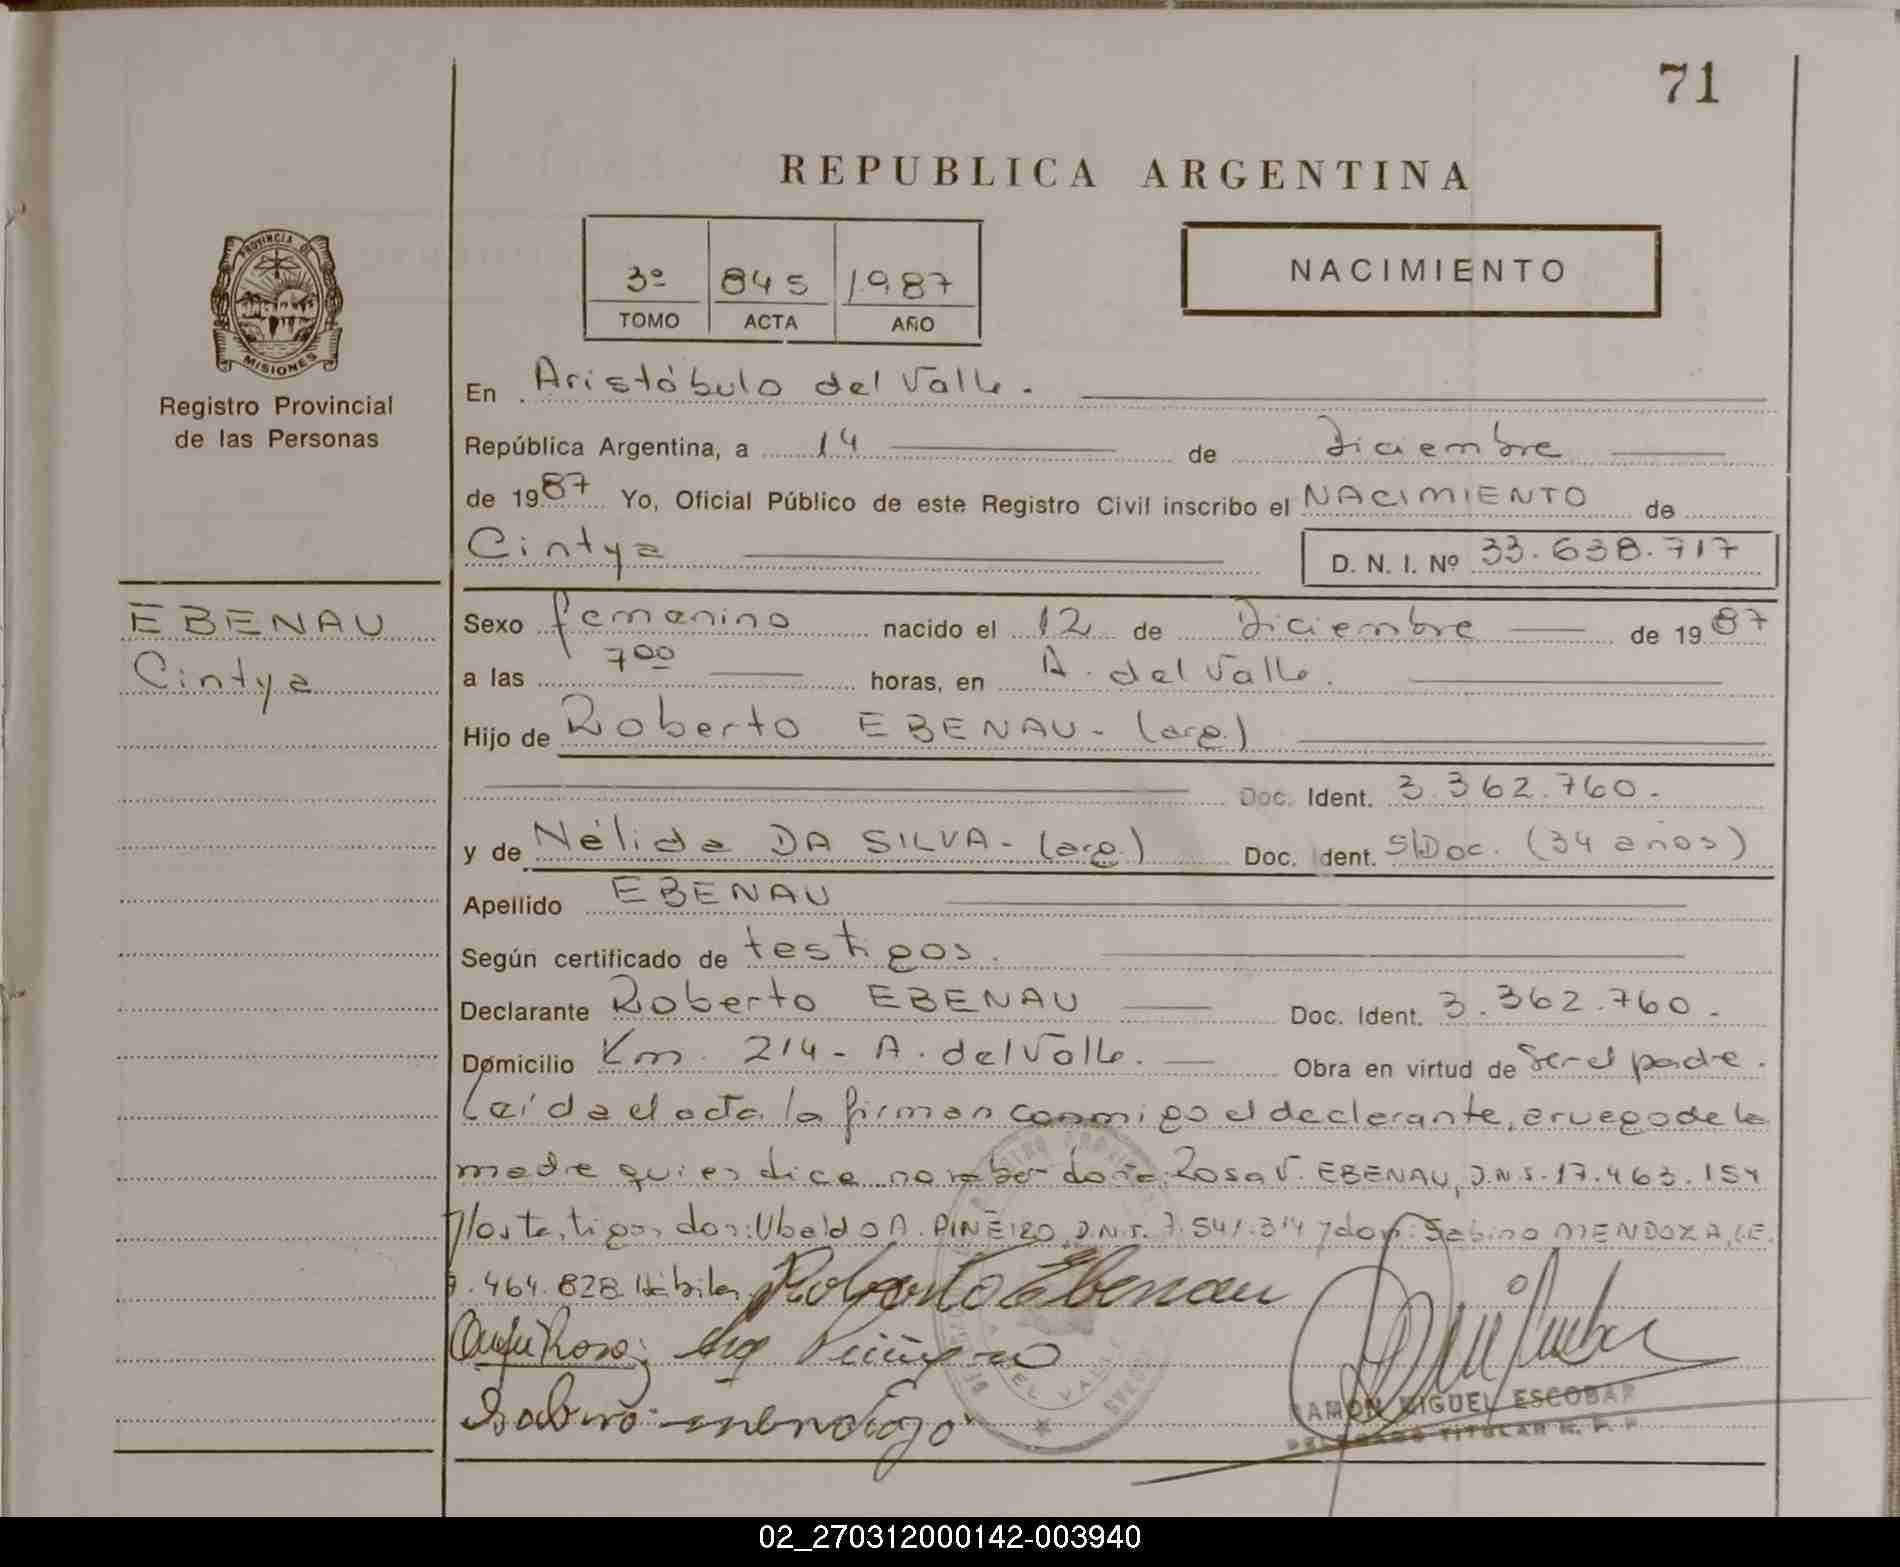 71
REPUBLICA ARGENTINA
PROVINCIA DE
MISIONES
Registro Provincial
de las Personas
3º 845 1987
TOMO ACTA AÑO
NACIMIENTO
En Aristóbulo del Valle.
República Argentina, a 14 de Diciembre
de 1987 Yo, Oficial Público de este Registro Civil inscribo el NACIMIENTO de
Cintya D. N. I. Nº 33.638.717
EBENAU
Cintya
Sexo femenino nacido el 12 de Diciembre de 1987
a las 7 00 horas, en A. del Valle.
Hijo de Roberto EBENAU - (arg.)
Doc. Ident. 3.362.760.
y de Nélida DA SILVA - (arg.) Doc. Ident. S/Doc. (34 años)
Apellido EBENAU
Según certificado de testigos.
Declarante Roberto EBENAU Doc. Ident. 3.362.760.
Domicilio Km. 214 - A. del Valle. Obra en virtud de Ser el padre.
Leída el acta la firman conmigo el declarante, a ruego de la
madre quien dice no saber doña Rosa V. EBENAU, D.N.I. 17.463.154
y los testigos don: Ubaldo A. PIÑEIRO D.N.I. 7.541.314 y don: Sabino MENDOZA, L.E.
7.464.828. Hábiles Roberto Ebenau
Rosa Piñeyro
Sabino mendoza
RAMON MIGUEL ESCOBAR
DELEGADO TITULAR R. P. P.
02_270312000142-003940